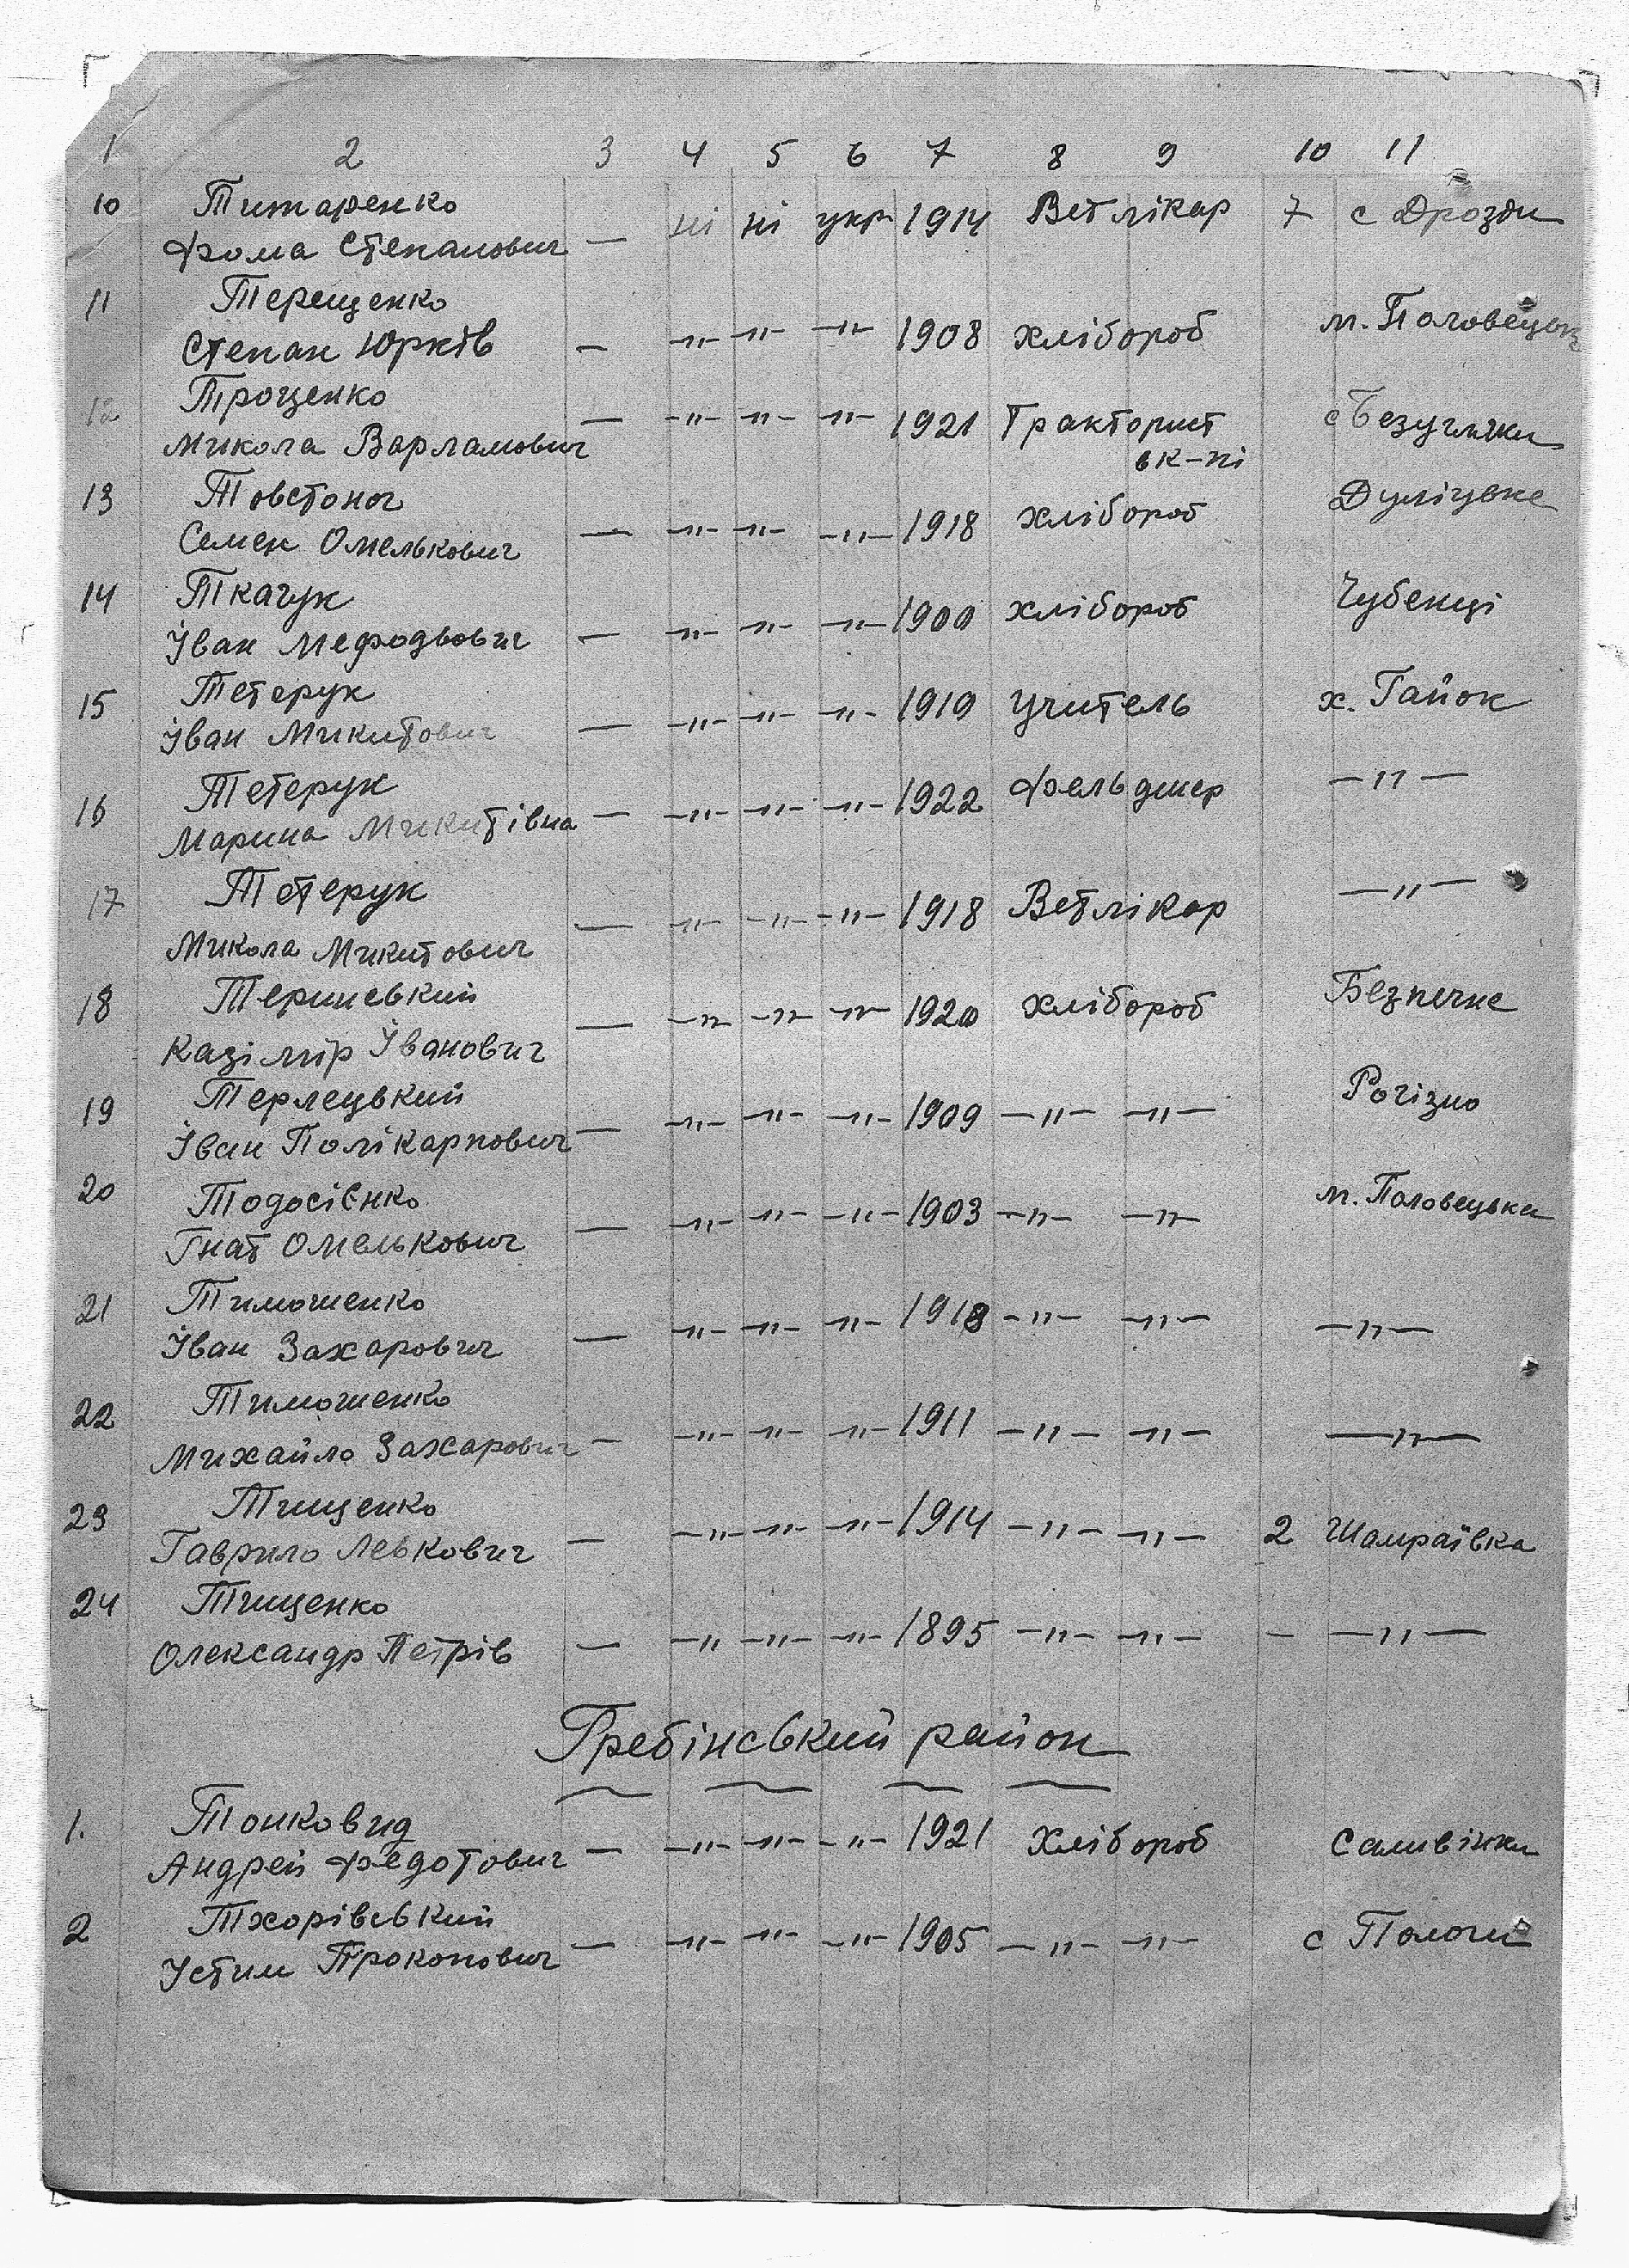 1 2 3 4 5 6 7 8 9 10 11
10 Титаренко
Фома Степанович — ні ні укр 1914 Ветлікар 7 с Дрозди
11 Терещенко
Степан Юрків — —"— —"— —"— 1908 хлібороб м. Половецьк
12 Троценко
Микола Варламович — —"— —"— —"— 1921 Тракторист с Безугляки
в к-пі
13 Товстоног
Семен Омелькович — —"— —"— —"— 1918 хлібороб Дуліцьке
14 Ткачук
Іван Мефодьович — —"— —"— —"— 1900 хлібороб Чубенці
15 Тетерук
Іван Микитович — —"— —"— —"— 1919 учитель х. Гайок
16 Тетерук
Марина Микитівна — —"— —"— —"— 1922 Фельдшер —"—
17 Тетерук
Микола Микитович — —"— —"— —"— 1918 Ветлікар —"—
18 Теринський
Казімір Іванович — —"— —"— —"— 1920 хлібороб Безпечне
19 Терлецький
Іван Полікарпович — —"— —"— —"— 1909 —"— —"— Рогізно
20 Тодосієнко
Гнат Омелькович — —"— —"— —"— 1903 —"— —"— м. Половецька
21 Тимошенко
Іван Захарович — —"— —"— —"— 1918 —"— —"— —"—
22 Тимошенко
Михайло Захарович — —"— —"— —"— 1911 —"— —"— —"—
23 Тищенко
Гаврило Левкович — —"— —"— —"— 1914 —"— —"— 2 Шамраївка
24 Тищенко
Олександр Петрів — —"— —"— —"— 1895 —"— —"— — —"—
Гребінський район
1. Тонковид
Андрей Федотович — —"— —"— —"— 1921 Хлібороб Саливінки
2 Тхорівський
Устим Прокопович — —"— —"— —"— 1905 —"— —"— с Пологи